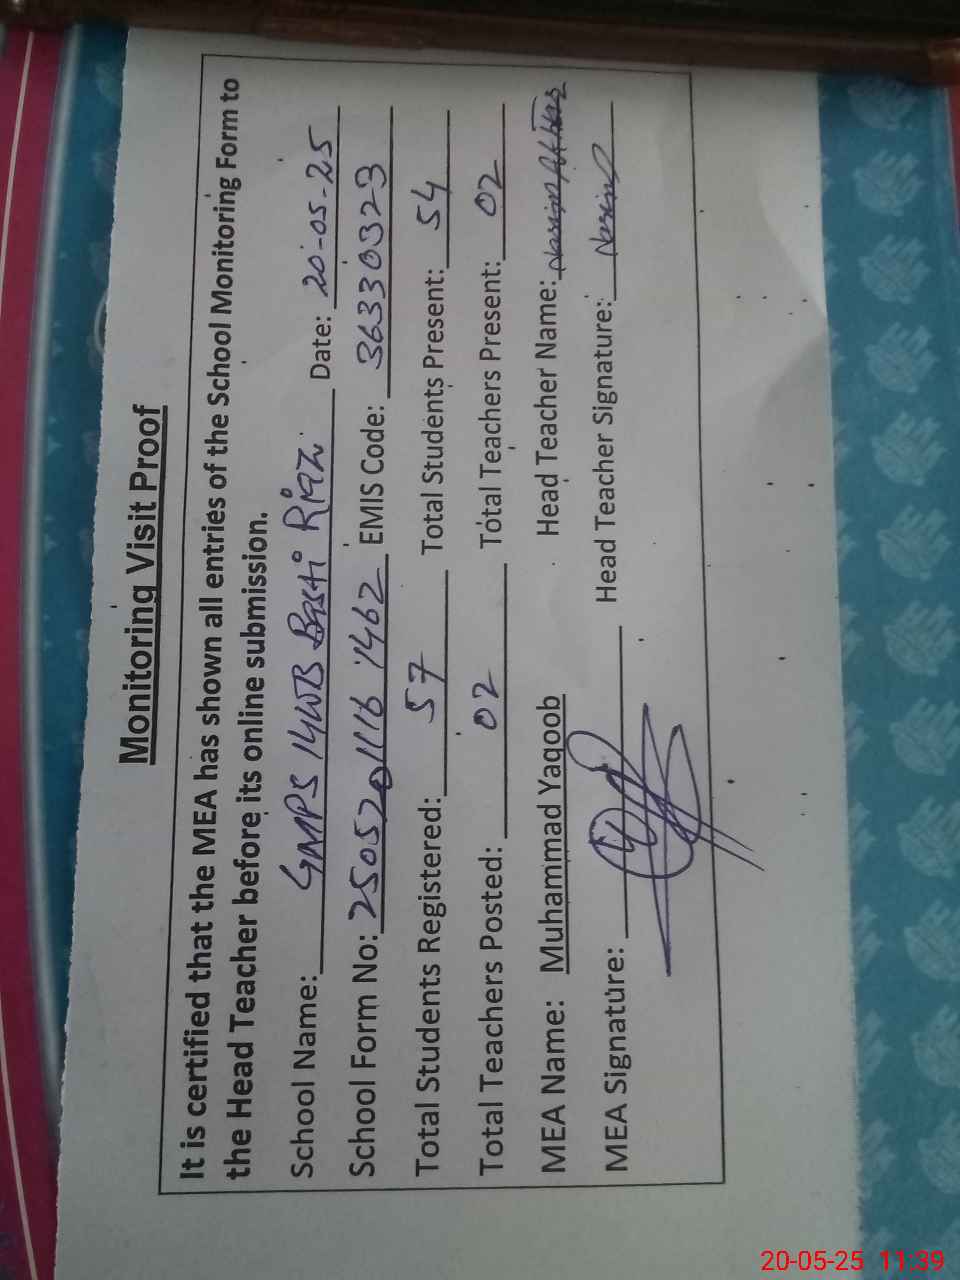 Monitoring Visit Proof
It is certified that the MEA has shown all entries of the School Monitoring Form to
the Head Teacher before its online submission.
School Name: GMPS 14WB Basti Riaz Date: 20-05-25
School Form No: 25052011161462 EMIS Code: 36330323
Total Students Registered: 57 Total Students Present: 54
Total Teachers Posted: 02 Total Teachers Present: 02
MEA Name: Muhammad Yaqoob Head Teacher Name: Nasim
MEA Signature: Head Teacher Signature: Nasim
20-05-25 11:39